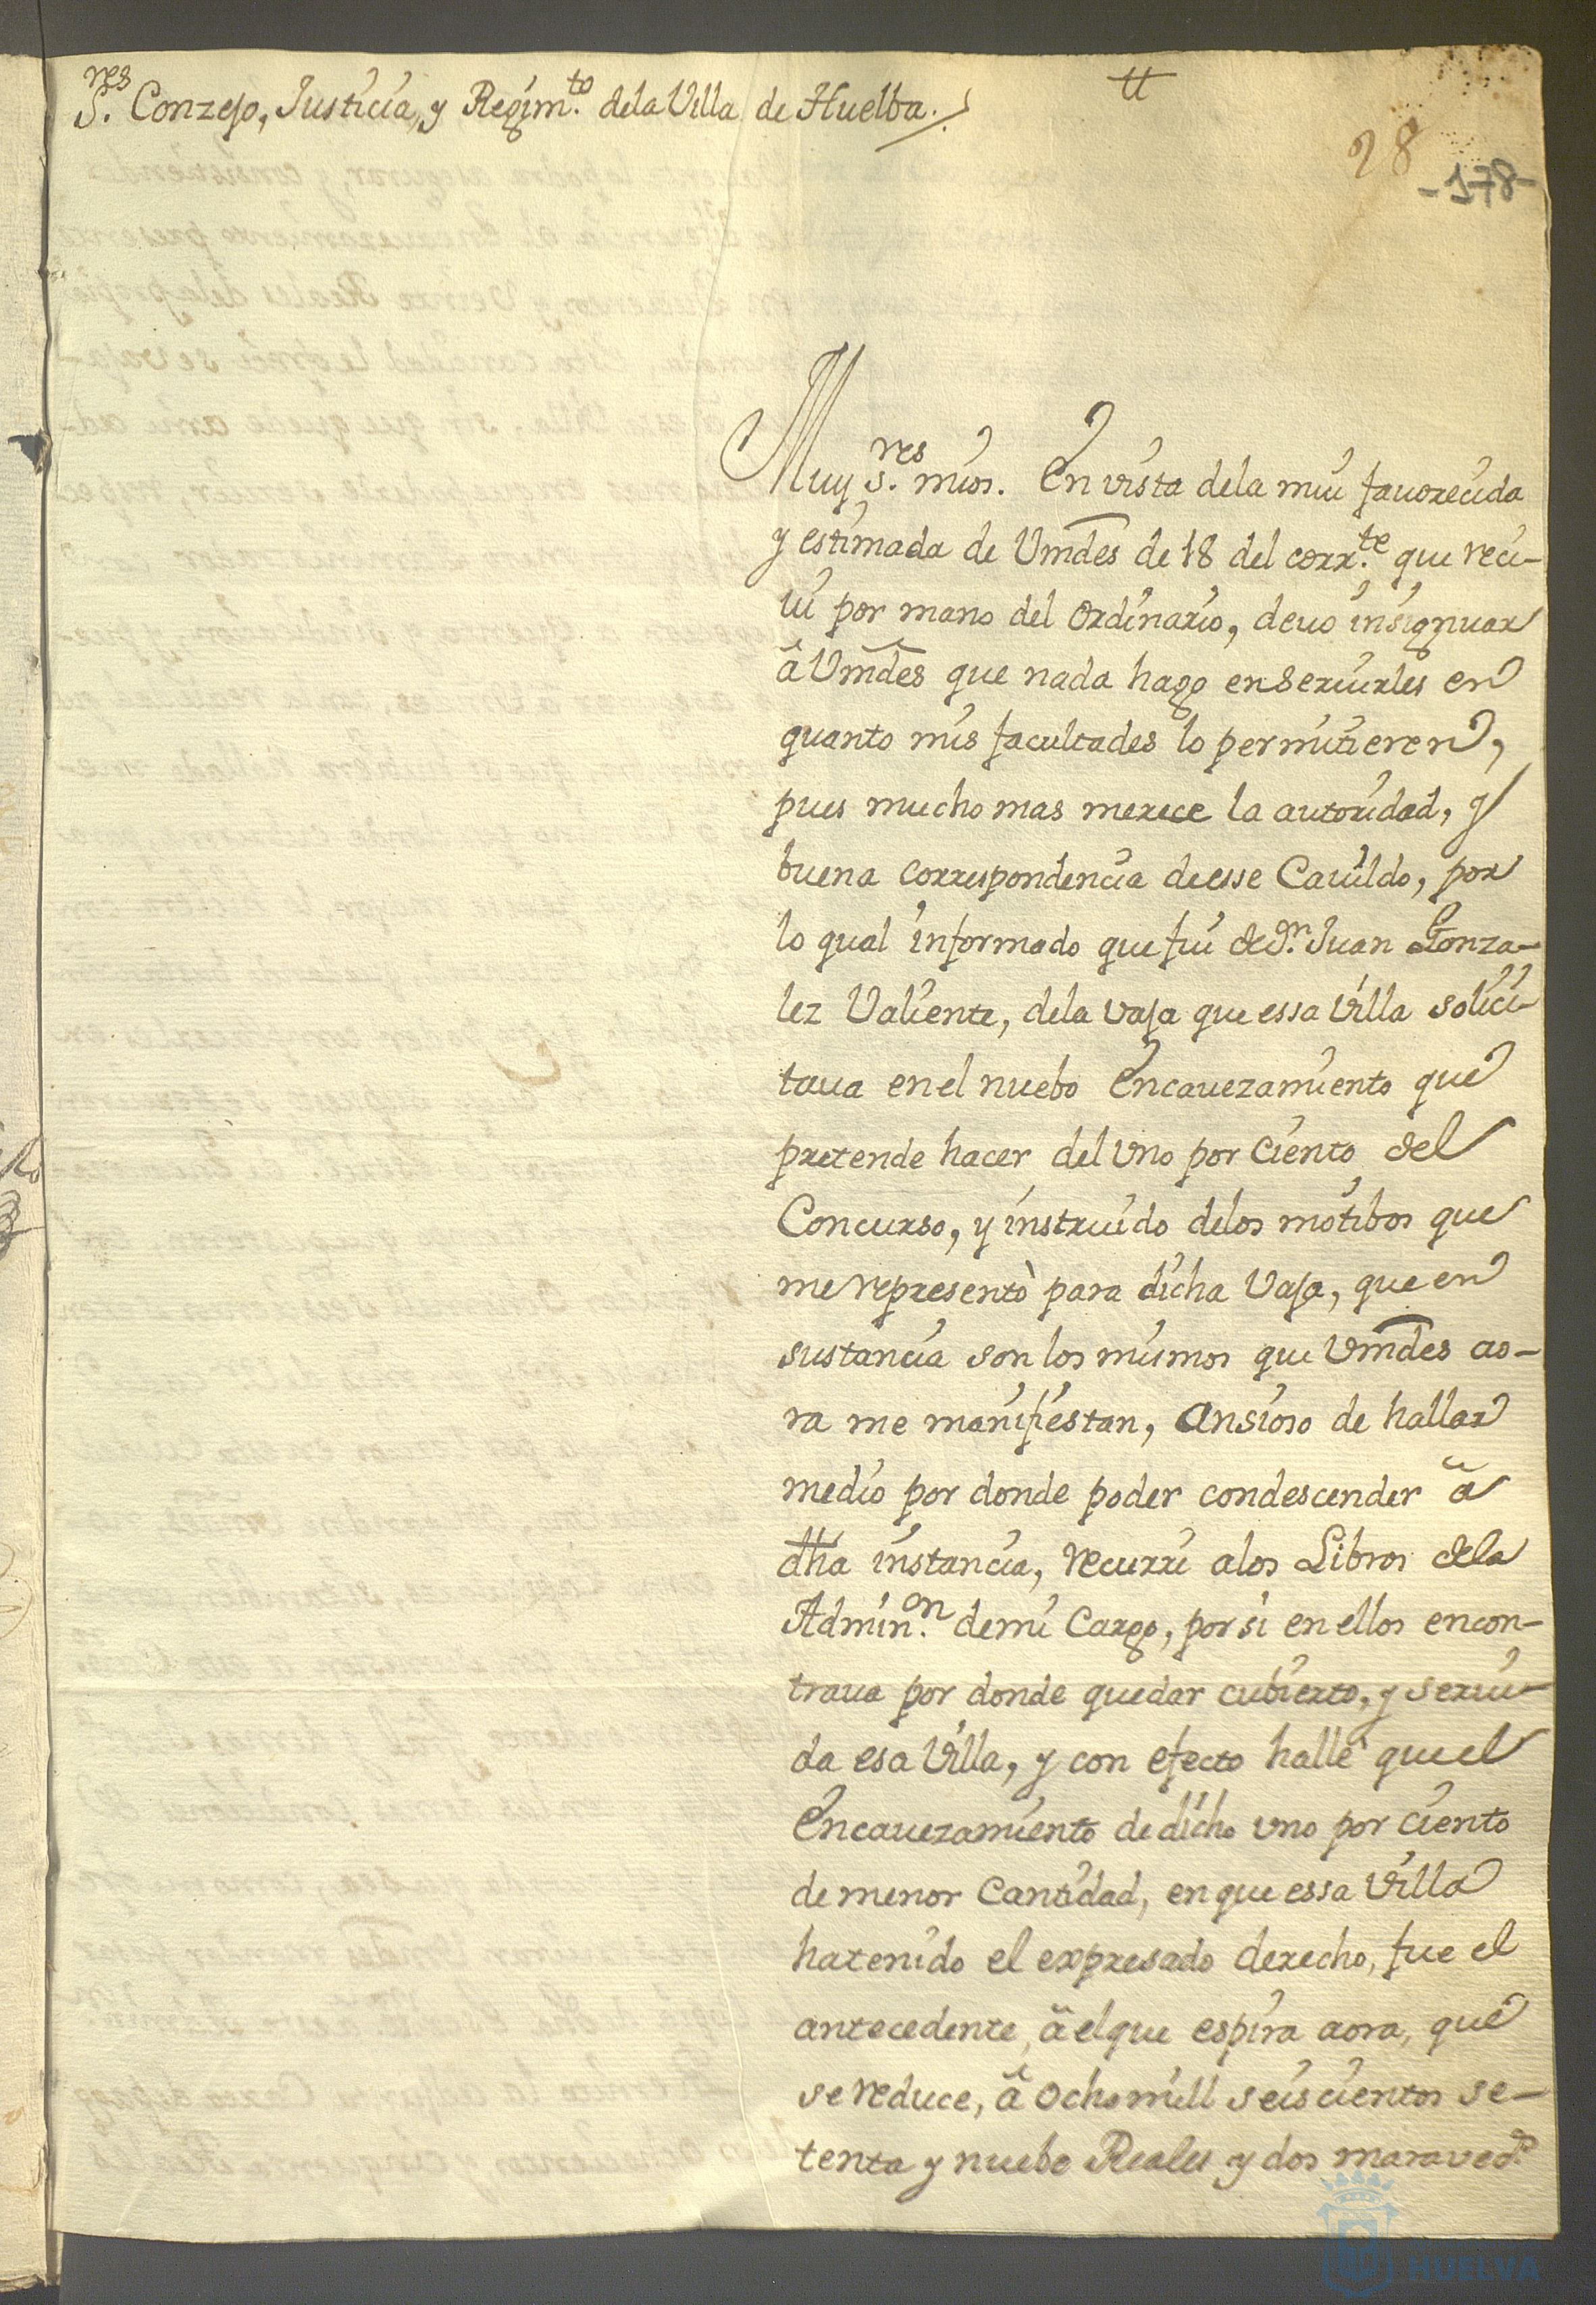 S.res Conzejo, Justicia, y Regim.to dela Villa de Huelba./
tt
28
-178-
Muy S.res mios. En vista dela mui favorecida
y estimada de Vmdes de 18 del corr.te que reci-
vi por mano del ordinario, devo insignuar
â Vmdes que nada hago en servirles en
quanto mis facultades lo permitieren,
pues mucho mas merece la autoridad, y
buena correspondencia de esse Cavildo, por
lo qual informado que fui de Dn. Juan Gonza-
lez Valiente, dela vaja que essa Villa solici-
tava en el nuebo Encavezamiento que
pretende hacer del Uno por Ciento del
Concurso, y instruido delos motibos que
me representò para dicha Vaja, que en
sustancia son los mismos que Vmdes ao-
ra me manifiestan, Ansioso de hallar
medio por donde poder condescender â
dha instancia, recurri alos Libros dela
Admin.on demi Cargo, por si en ellos encon-
trava por donde quedar cubierto, y servi-
da esa Villa, y con efecto hallè que el
Encavezamiento de dicho uno por ciento
de menor Cantidad, en que essa Villa
hatenido el expresado derecho, fue el
antecedente, â el que espira aora, que
se reduce, â Ocho mill seiscientos se-
tenta y nuebe Reales y dos maraveds
HUELVA